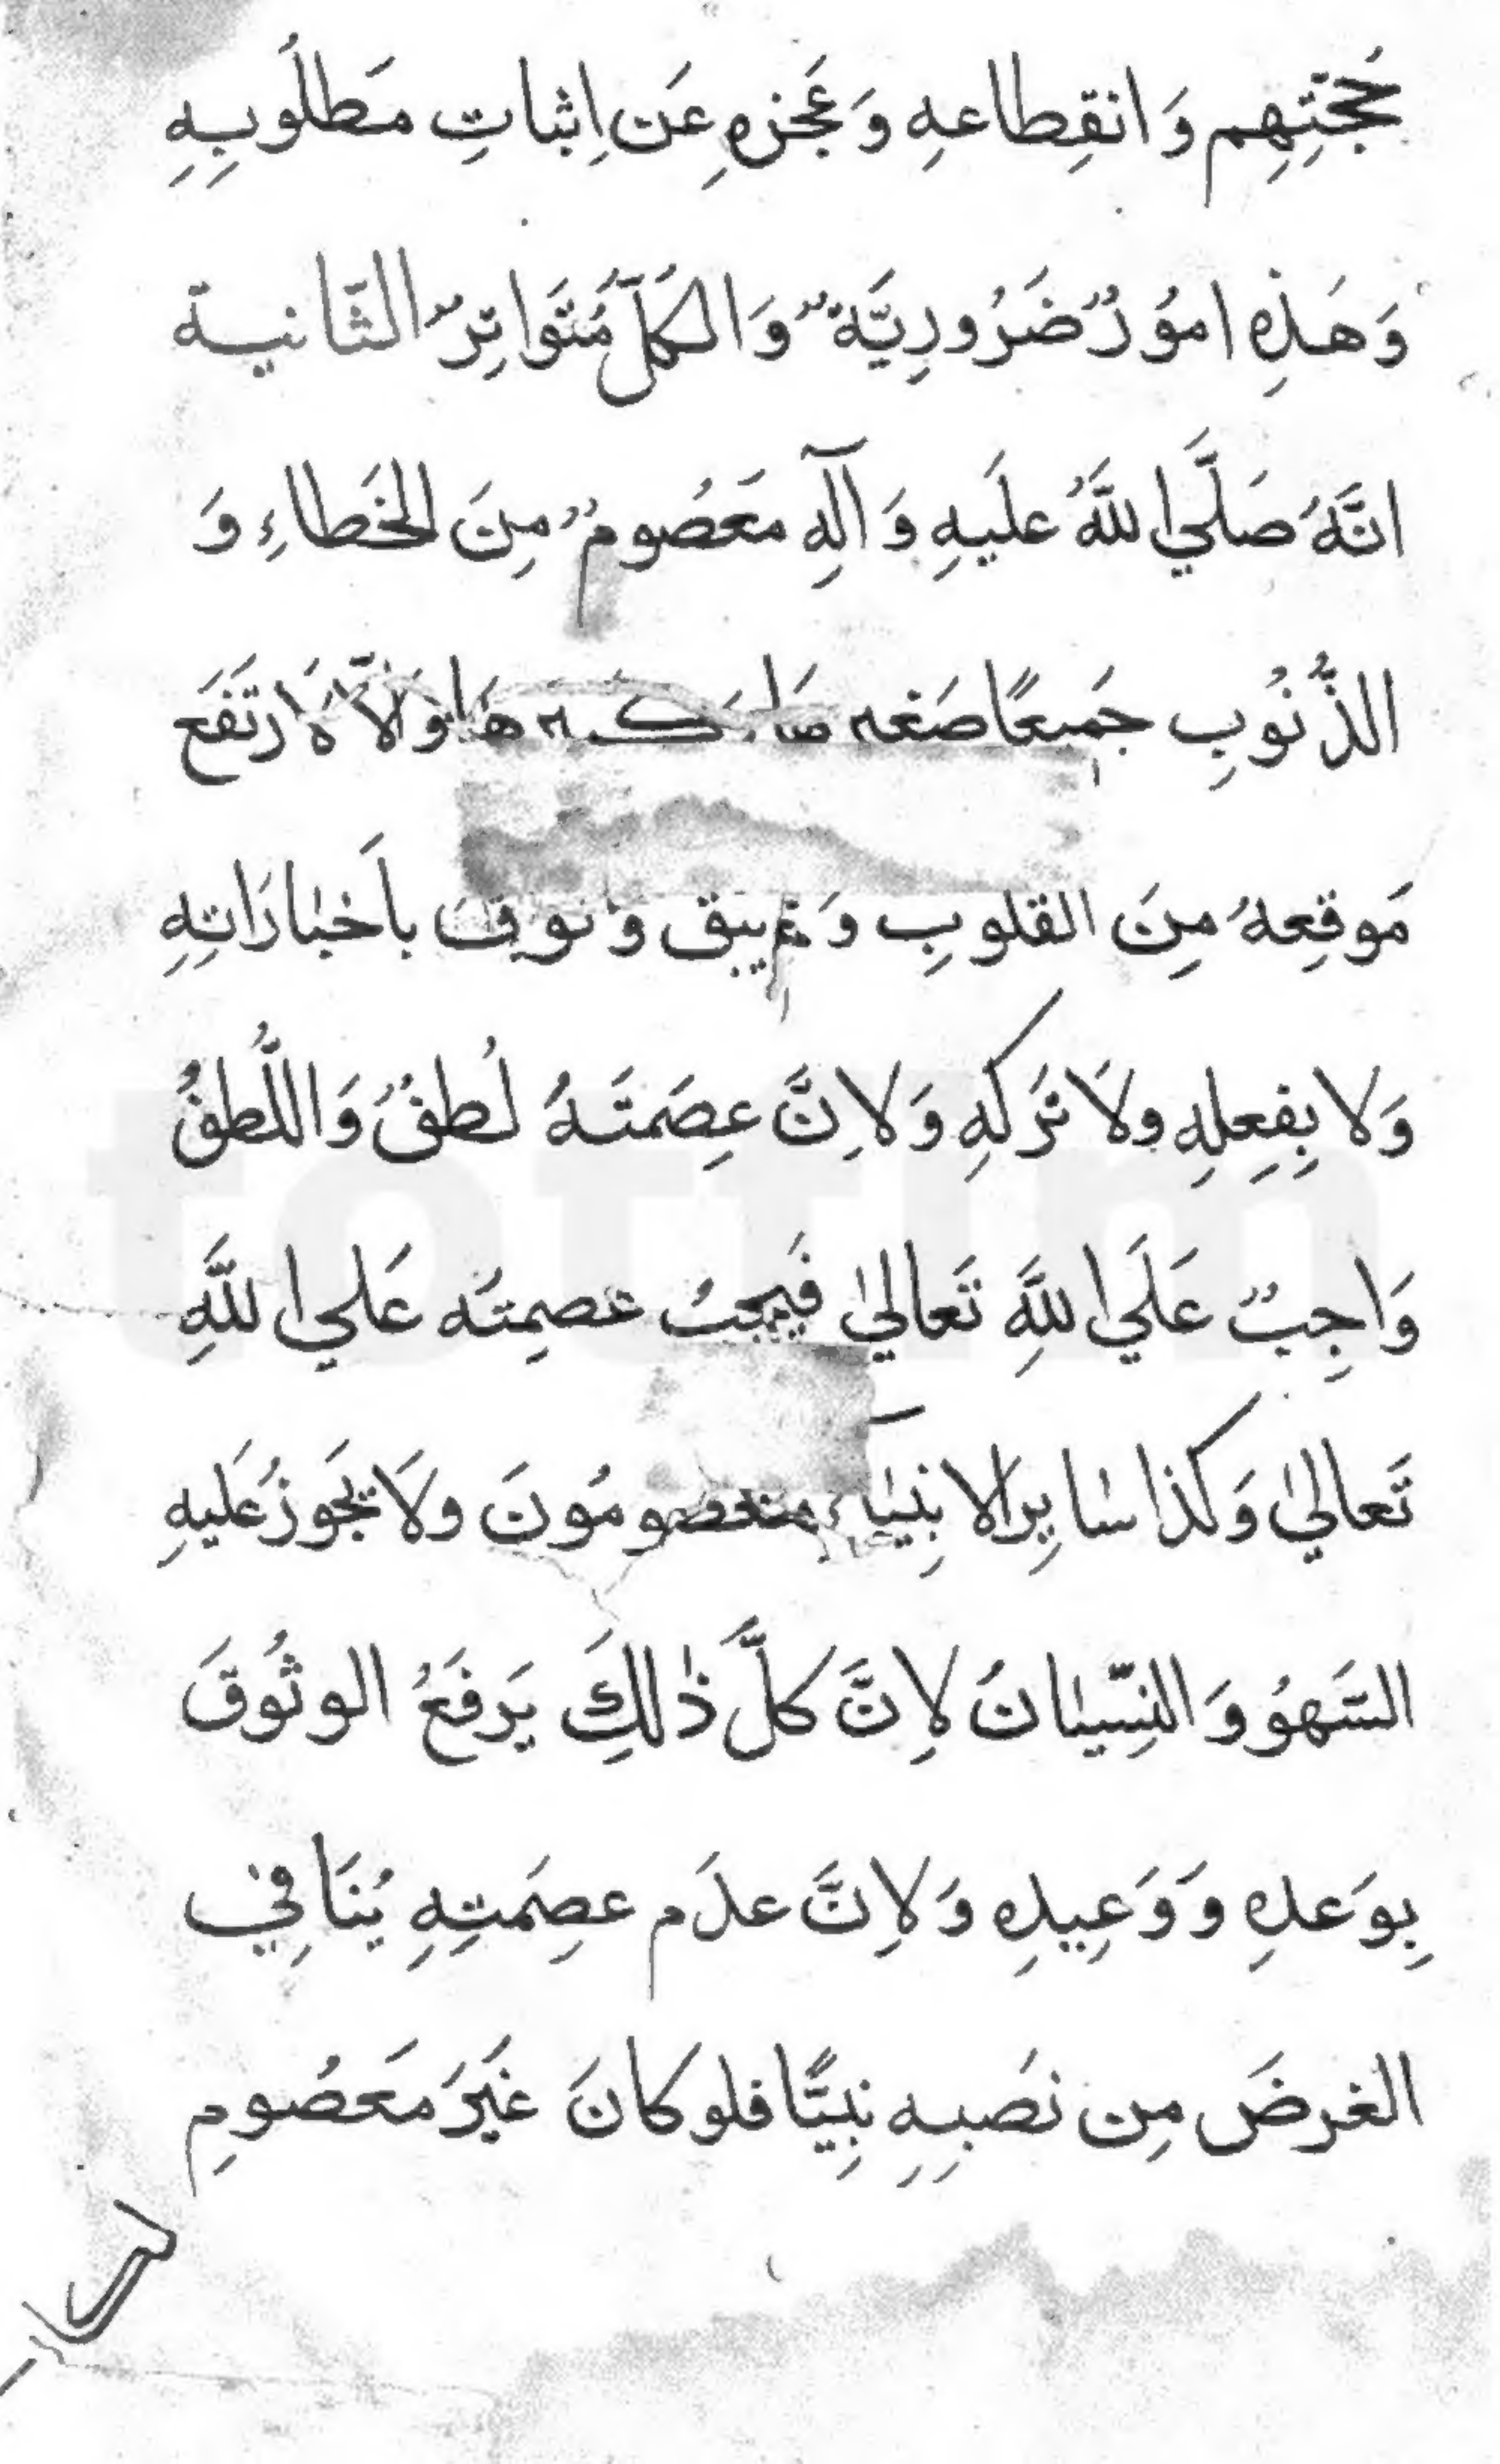 حُجَّتِهِم وَ انقِطاعهِ وَ عَجزهِ عَن اِثباتِ مَطلُوبِهِ
وَ هَذِهِ امُورٌ ضَرُورِيَّةٌ وَ الكُلُّ مُتَوَاتِرٌ الثَّانيـة
انَّهُ صَلَّي اللَّهُ علَيهِ وَ آلَهِ مَعَصُومٌ مِنَ الخَطاءِ وَ
الذُّنُوبِ جَميعًا وَلاَّ لاَرتَفَع
مَوقِعهُ مِنَ القلوبِ وَ يبق باَخبارَاتِهِ
وَلا بِفِعلِهِ ولاَ تَركهِ وَلاِنَّ عِصَمتَهُ لُطفٌ وَ اللُّطفُ
وَاجِبٌ عَلَي اللَّهِ تَعالیٰ فَيجبُ عصمِتَه عَلي اللَّهِ
تَعاليٰ وَ كذا سایِر الانبِيَاء معصومُونَ ولاَ يَجوزُ عَليهِ
السَّهوُ وَ النِسّيانُ لاِنَّ كلَّ ذٰلكَِ يَرفَعُ الوثُوقَ
بِوَعدهِ وَ وَعِيدِهِ وَ لاِنَّ عدَم عصِمَتِهِ يُنَافِي
الغرضَ مِن نصَبِهِ نبِيًّا فلو كانَ غَيرَ مَعَصُومٍ